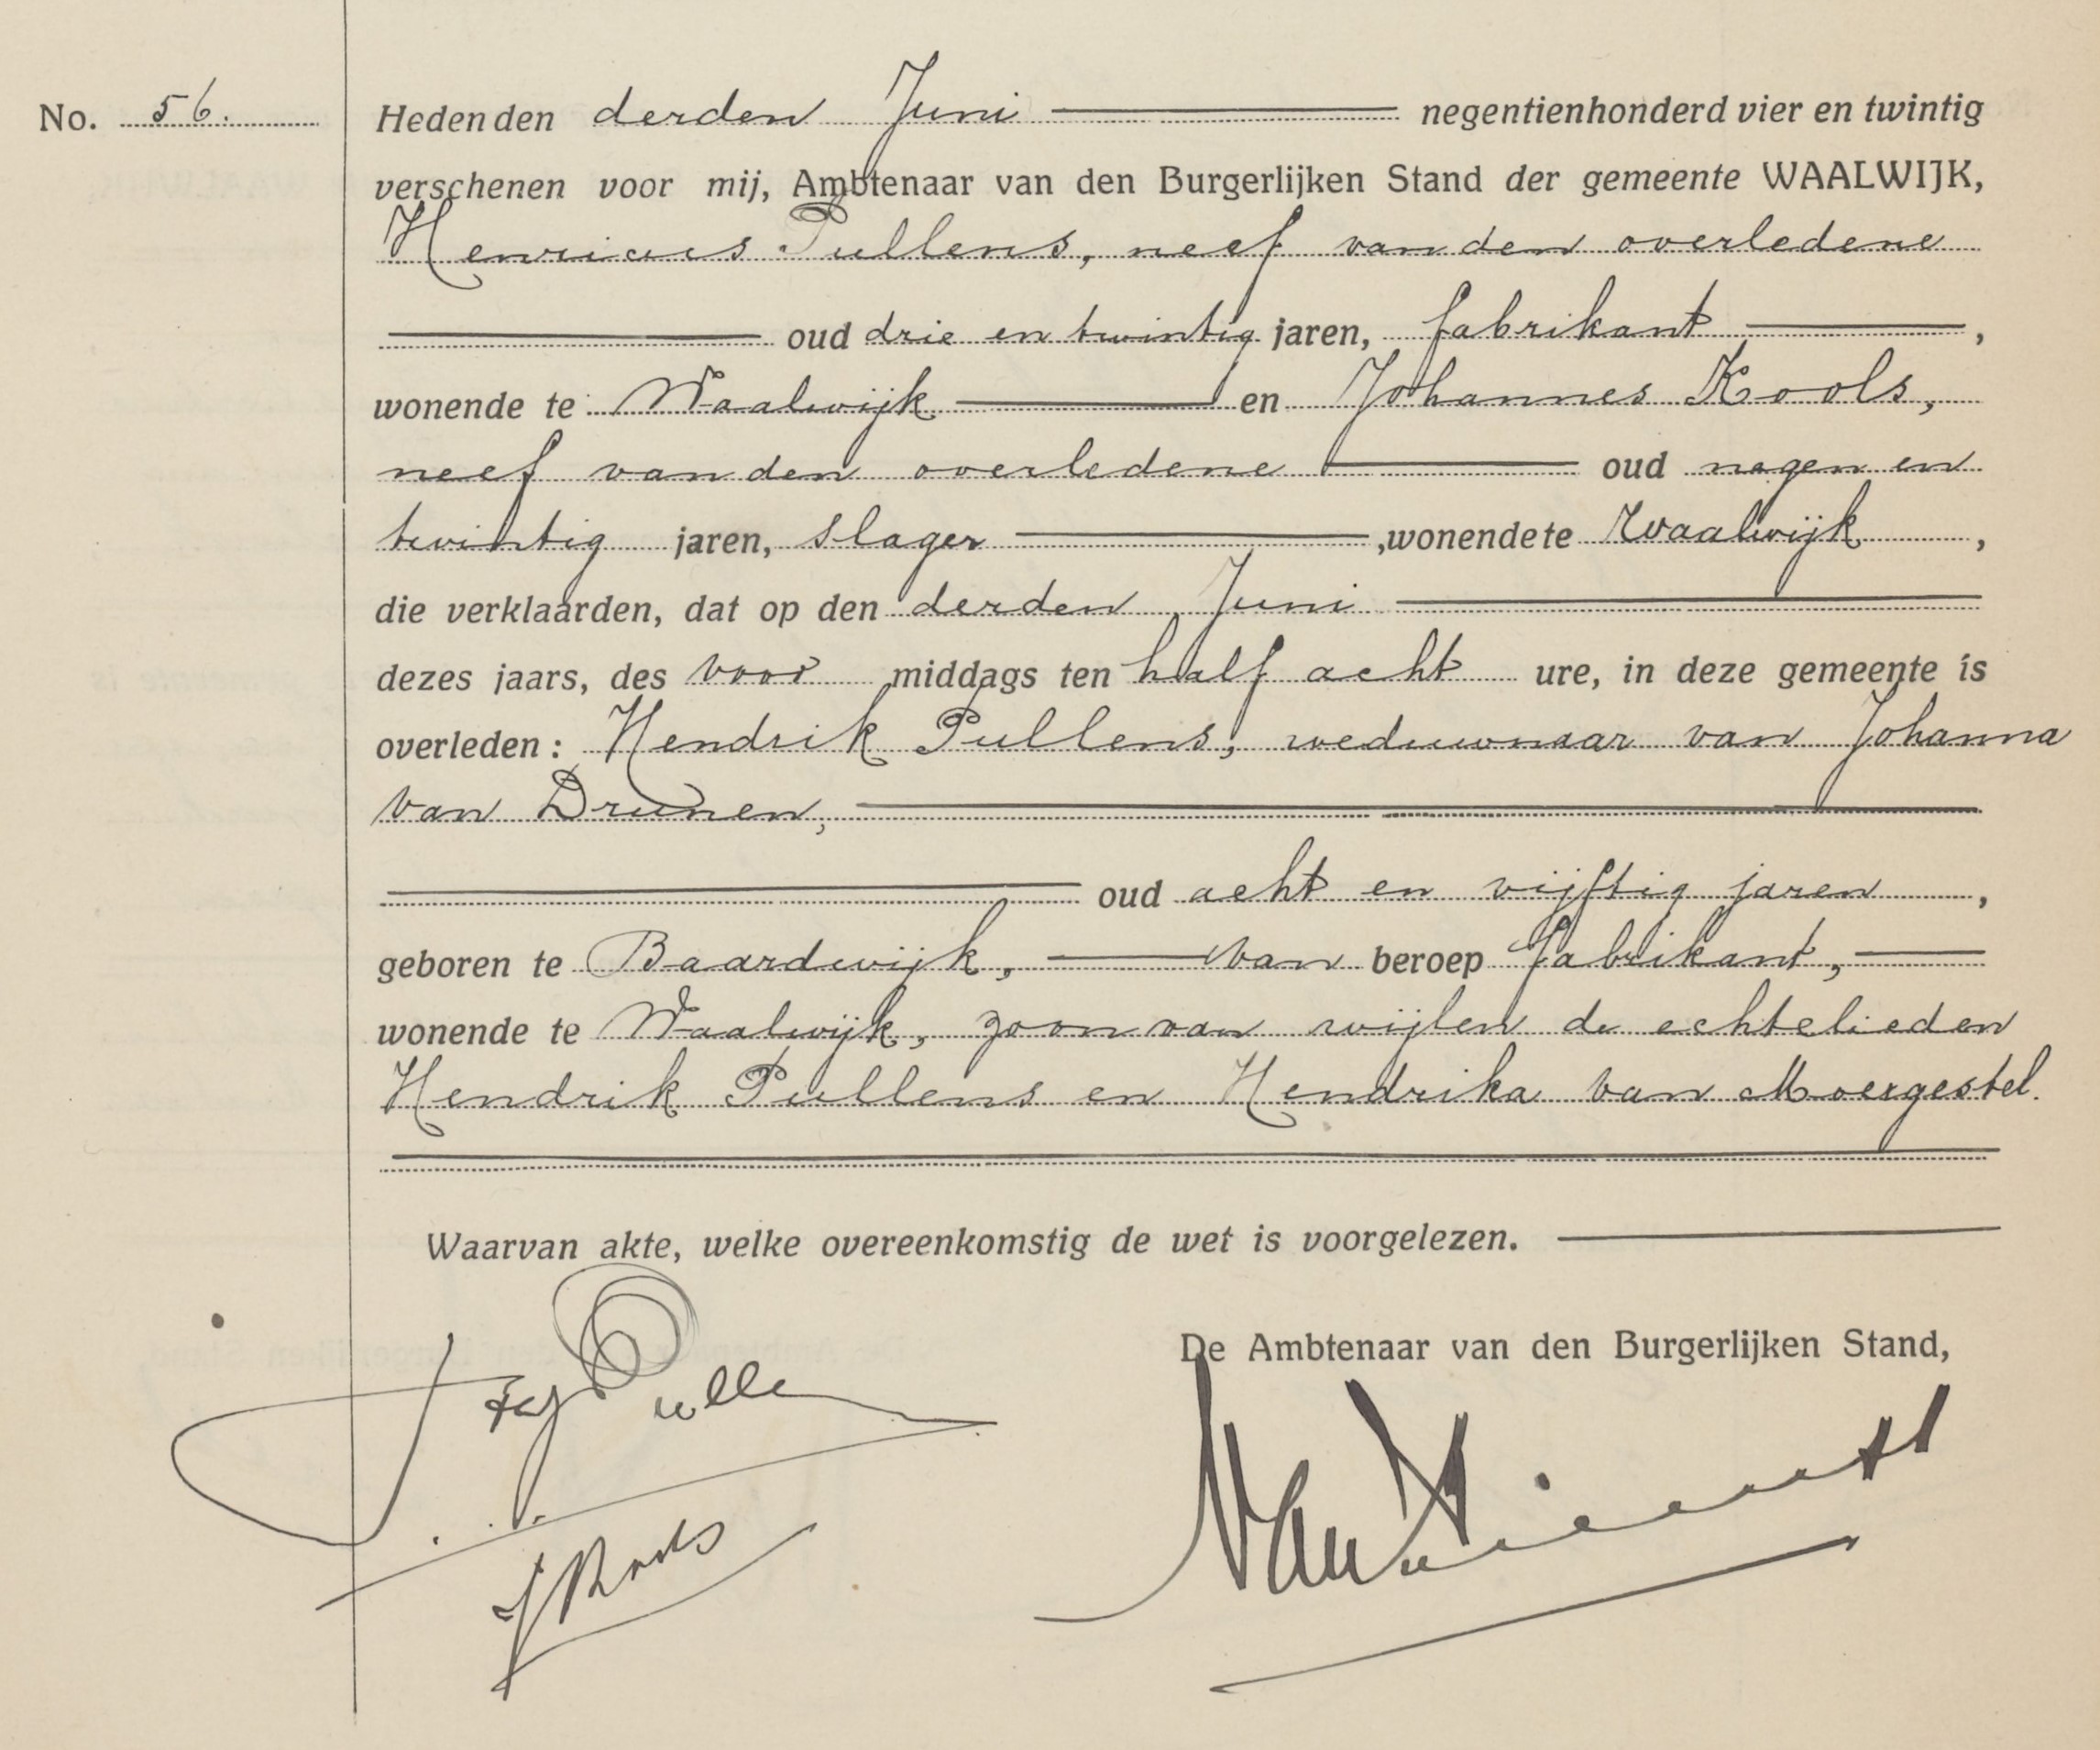 No. 56. Heden den derden Juni negentienhonderd vier en twintig
verschenen voor mij, Ambtenaar van den Burgerlijken Stand der gemeente WAALWIJK,
Henricus Pullens, neef van den overledene
oud drie en twintig jaren, fabrikant,
wonende te Waalwijk en Johannes Kools,
neef van den overledene oud negen en
twintig jaren, slager, wonende te Waalwijk,
die verklaarden, dat op den derden Juni
dezes jaars, des voor middags ten half acht ure, in deze gemeente is
overleden: Hendrik Pullens, weduwnaar van Johanna
van Drunen,
oud acht en vijftig jaren,
geboren te Baardwijk, van beroep fabrikant,
wonende te Waalwijk, zoon van wijlen de echtelieden
Hendrik Pullens en Hendrika van Moergestel.
Waarvan akte, welke overeenkomstig de wet is voorgelezen.
De Ambtenaar van den Burgerlijken Stand,
J Kools